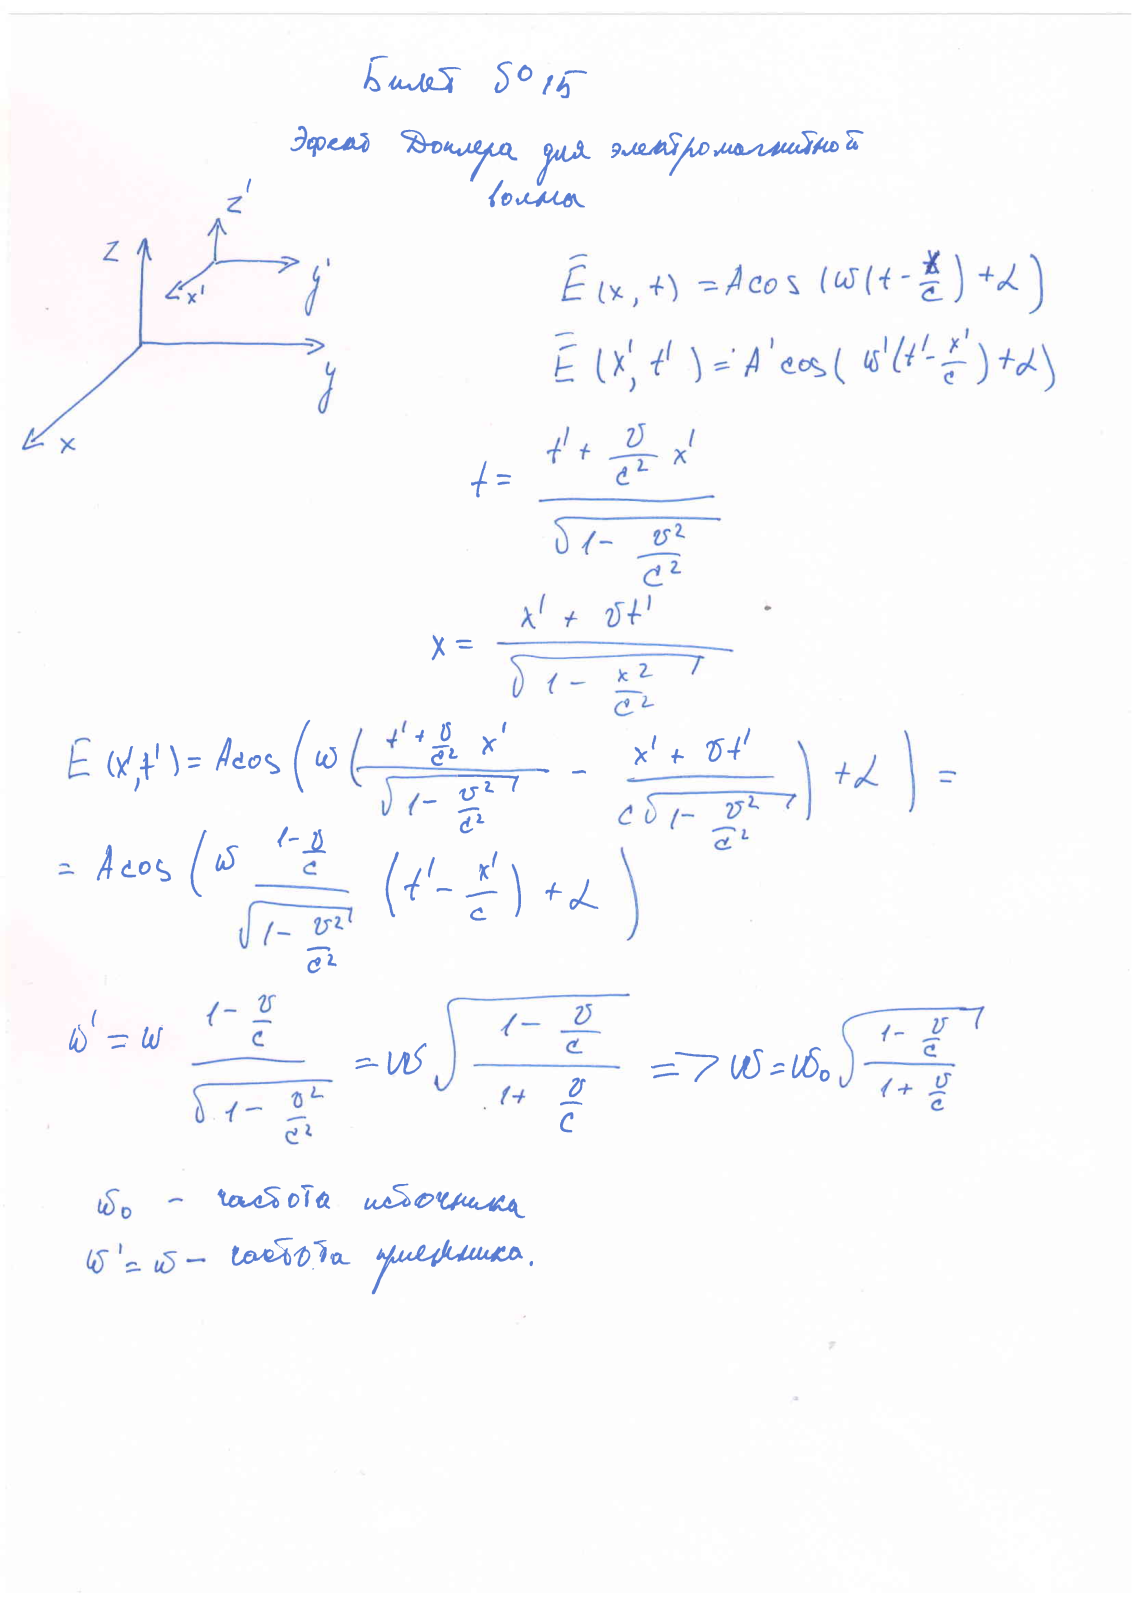 Билет №15
Эффект Доплера для электромагнитной
волны
z z' y' x' y x
Ē(x, t) = A cos(ω(t - x/c) + α)
Ē(x', t') = A' cos(ω'(t' - x'/c) + α)
t = (t' + v/c² x') / √(1 - v²/c²)
x = (x' + vt') / √(1 - x²/c²)
E(x', t') = A cos(ω((t' + v/c² x') / √(1 - v²/c²) - (x' + vt') / (c√(1 - v²/c²))) + α) =
= A cos(ω (1 - v/c) / √(1 - v²/c²) (t' - x'/c) + α)
ω' = ω (1 - v/c) / √(1 - v²/c²) = ω √((1 - v/c) / (1 + v/c)) => ω = ω₀ √((1 - v/c) / (1 + v/c))
ω₀ - частота источника
ω' = ω - частота приемника.